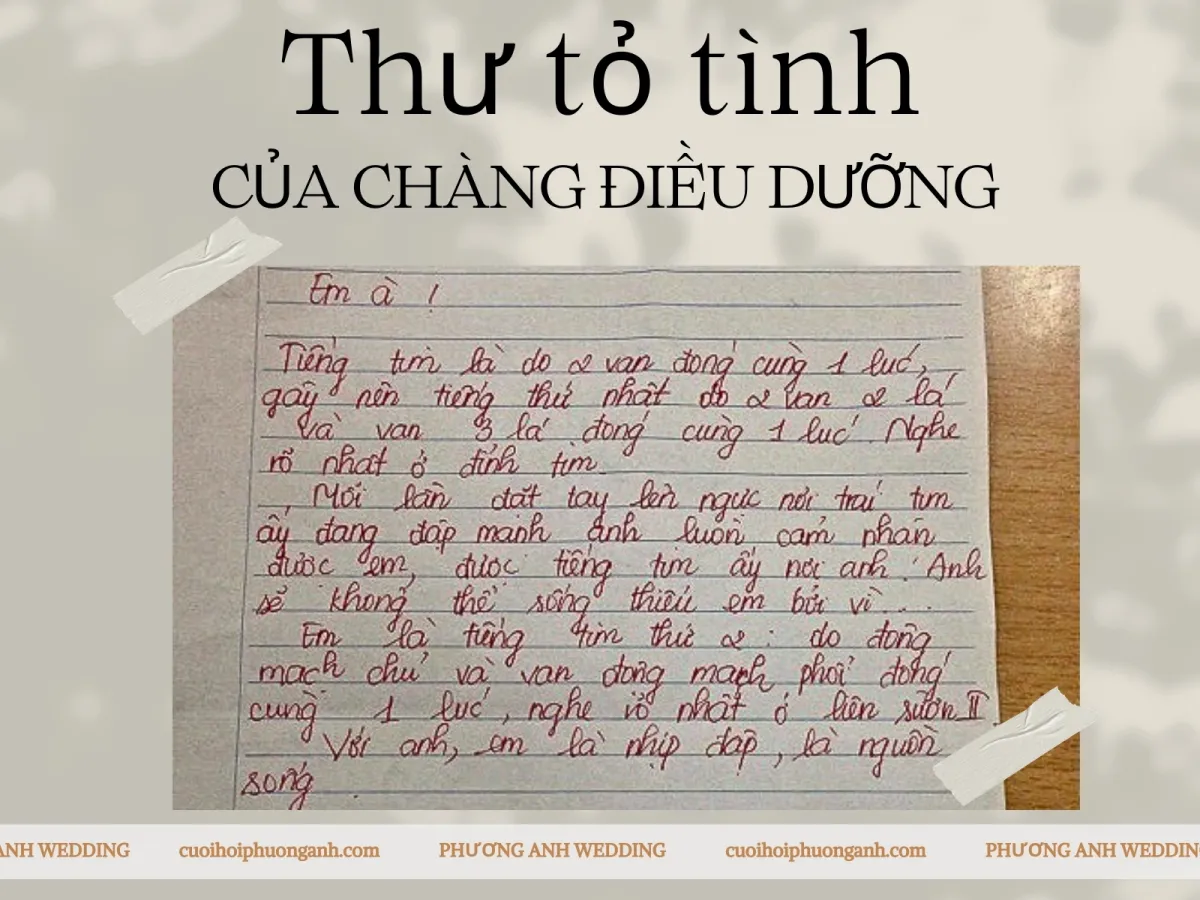 Thư tỏ tình
CỦA CHÀNG ĐIỀU DƯỠNG
Em à !
Tiếng tim là do 2 van đóng cùng 1 lúc,
gây nên tiếng thứ nhất do 2 van 2 lá
và van 3 lá đóng cùng 1 lúc. Nghe
rõ nhất ở đỉnh tim.
Mỗi lần đặt tay lên ngực nơi trái tim
ấy đang đập mạnh anh luôn cảm nhận
được em, được tiếng tim ấy nơi anh. Anh
sẽ không thể sống thiếu em bởi vì...
Em là tiếng tim thứ 2 : do động
mạch chủ và van động mạch phổi đóng
cùng 1 lúc, nghe rõ nhất ở liên sườn II.
Với anh, em là nhịp đập, là nguồn
sống
ANH WEDDING cuoihoiphuonganh.com PHƯƠNG ANH WEDDING cuoihoiphuonganh.com PHƯƠNG ANH WEDDING